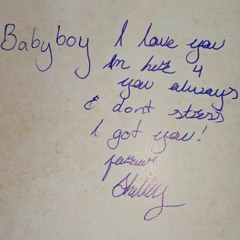 Babyboy I love you
Im here 4
you always
& dont stress
I got you!
forever
Shelley